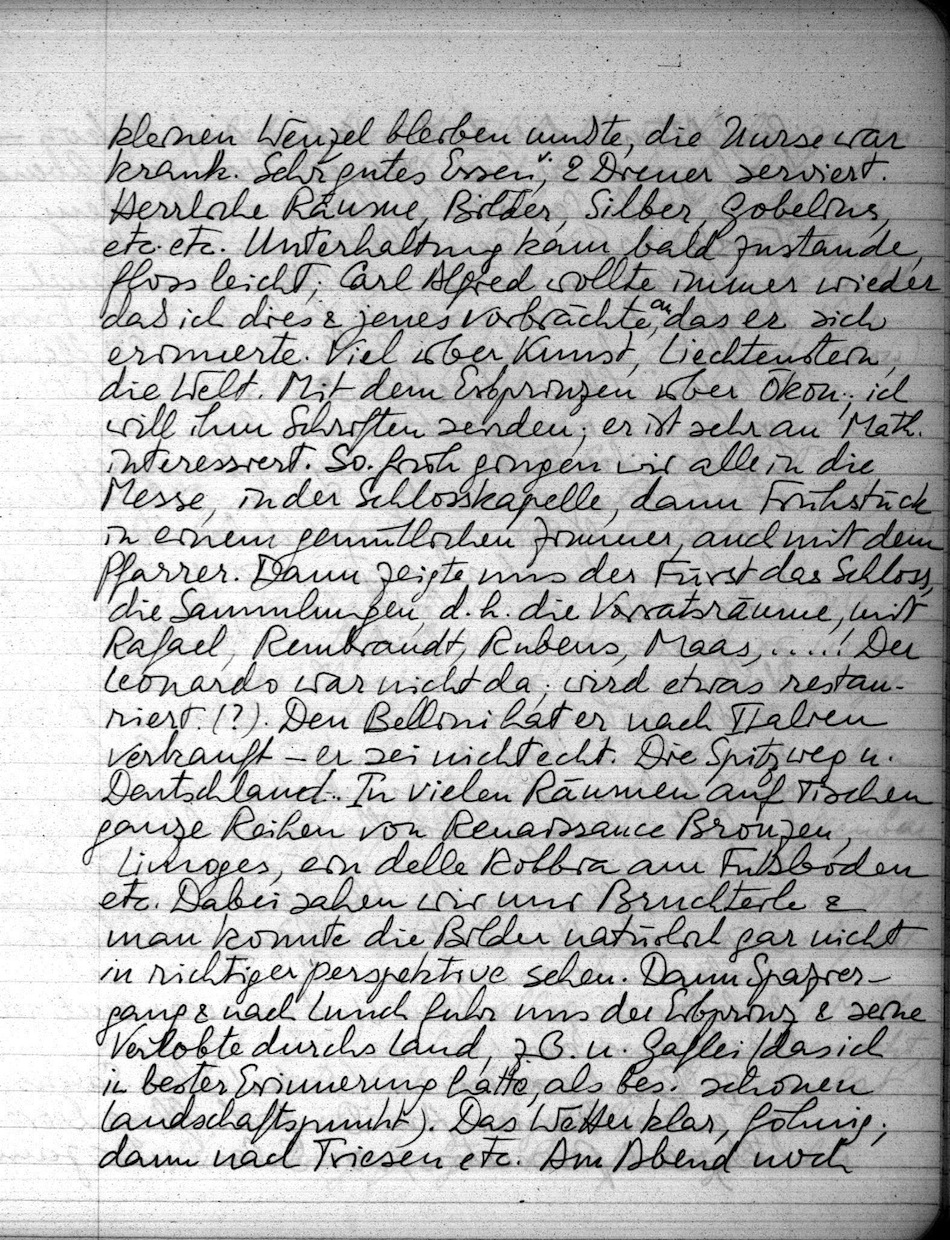 kleinen Wenzel bleiben musste, die Nurse war
krank. Sehr gutes Essen; 2 Diener serviert.
Herrliche Räume, Bilder, Silber, Gobelins,
etc. etc. Unterhaltung kam bald zustande,
floss leicht; Carl Alfred wollte immer wieder
daß ich dies & jenes vorbrächte, an das er sich
erinnerte. Viel über Kunst, Liechtenstein,
die Welt. Mit dem Erbprinzen über Ökon.; ich
will ihm Schriften senden; er ist sehr an Math.
interessiert. So. früh gingen wir alle in die
Messe, in der Schlosskapelle, dann Frühstück
in einem gemütlichen Zimmer, auch mit dem
Pfarrer. Dann zeigte uns der Fürst das Schloss,
die Sammlungen, d.h. die Vorratsräume, mit
Rafael, Rembrandt, Rubens, Maas, ....! Der
Leonardo war nicht da; wird etwas restau-
riert (?). Den Bellini hat er nach Italien
verkauft – er sei nicht echt. Die Spitzweg n.
Deutschland. In vielen Räumen auf Tischen
ganze Reihen von Renaissance Bronzen,
Limoges, ein delle Robbia am Fußboden
etc. Dabei sahen wir nur Bruchteile &
man konnte die Bilder natürlich gar nicht
in richtiger perspektive sehen. Dann Spazier-
gang & nach Lunch fuhr uns der Erbprinz & seine
Verlobte durchs Land, z.B. n. Gaflei (das ich
in bester Erinnerung hatte, als bes. schönen
Landschaftspunkt). Das Wetter klar, föhnig;
dann nach Triesen etc. Am Abend noch